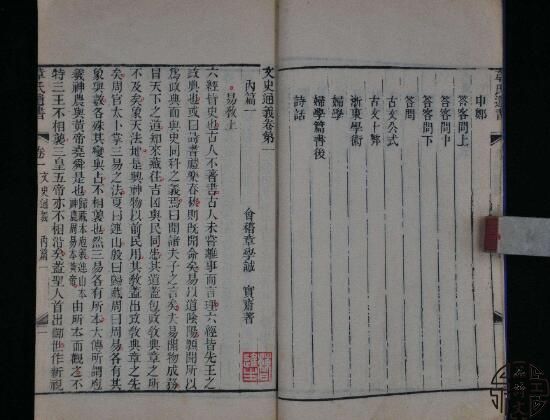 章氏遺書
申鄭
答客問上
答客問中
答客問下
答問
古文公式
古文十弊
浙東學術
婦學
婦學篇書後
詩話
文史通義卷第一
會稽章學誠 實齋著
內篇一
易教上
六經皆史也古人不著書古人未嘗離事而言理六經皆先王之
政典也或曰詩書禮樂春秋則既聞命矣易以道陰陽願聞所以
爲政典而與史同科之義焉曰聞諸夫子之言矣夫易開物成務
冒天下之道知來藏往吉凶與民同患其道蓋包政教典章之所
不及矣象天法地是興神物以前民用其教蓋出政教典章之先
矣周官太卜掌三易之法夏曰連山殷曰歸藏周曰周易各有其
象與數各殊其變與占不相襲也然三易各有所本大傳所謂庖
羲神農與黃帝堯舜是也歸藏本庖羲連山本神農周易本黃帝由所本而觀之不
特三王不相襲三皇五帝亦不相沿矣蓋聖人首出御世作新視
章氏遺書 卷一 文史通義 內篇一